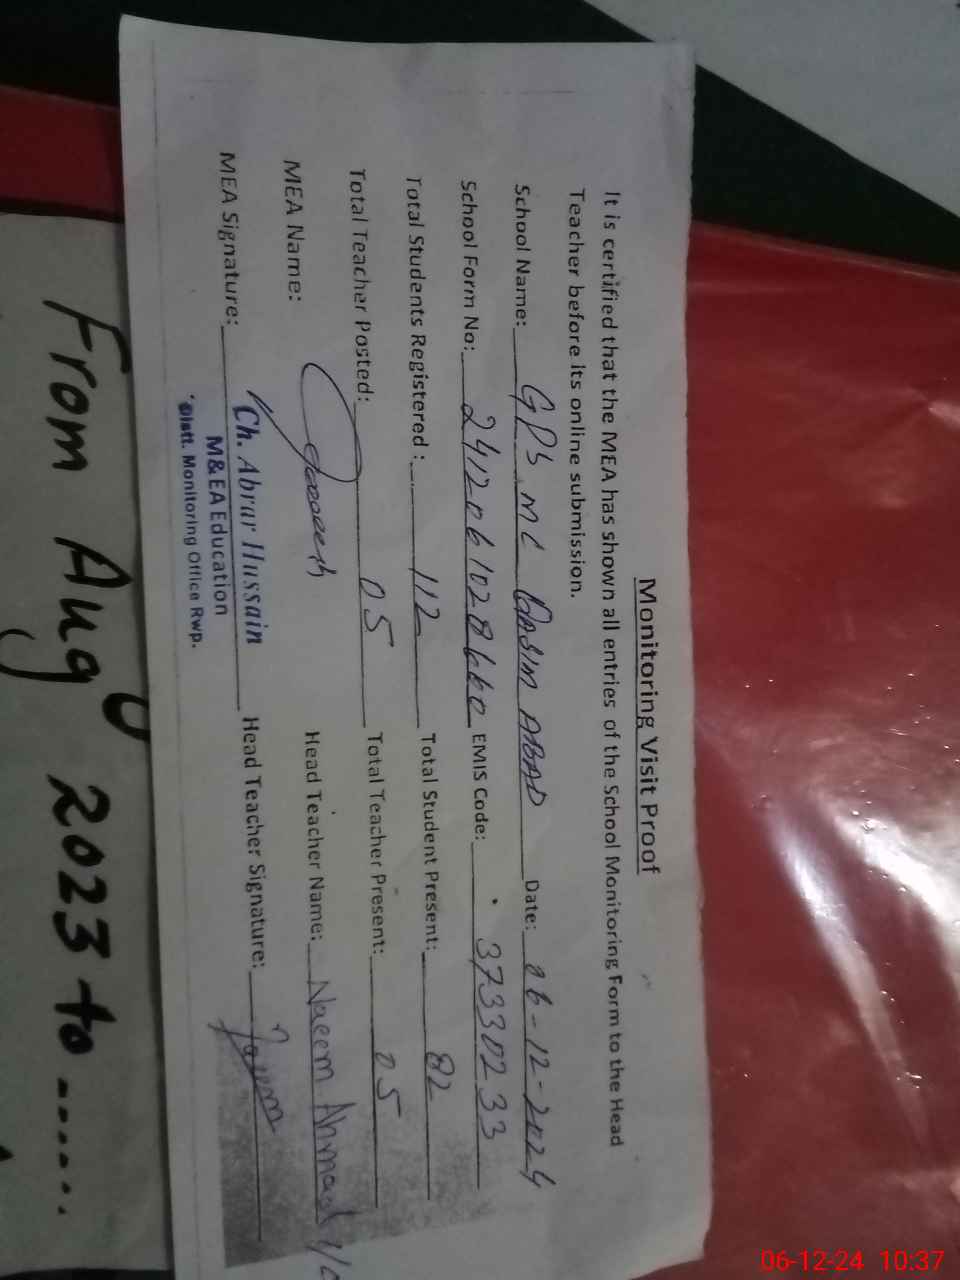 Monitoring Visit Proof
It is certified that the MEA has shown all entries of the School Monitoring Form to the Head
Teacher before its online submission.
School Name: GPS MC QASIM ABAD Date: 06-12-2024
School Form No: 2412061028660 EMIS Code: 37330233
Total Students Registered : 112 Total Student Present: 82
Total Teacher Posted: 05 Total Teacher Present: 05
MEA Name: Head Teacher Name: Naeem Ahmad
MEA Signature: Head Teacher Signature:
Ch. Abrar Hussain
M&EA Education
Distt. Monitoring Office Rwp.
From Aug 2023 to ------
06-12-24 10:37